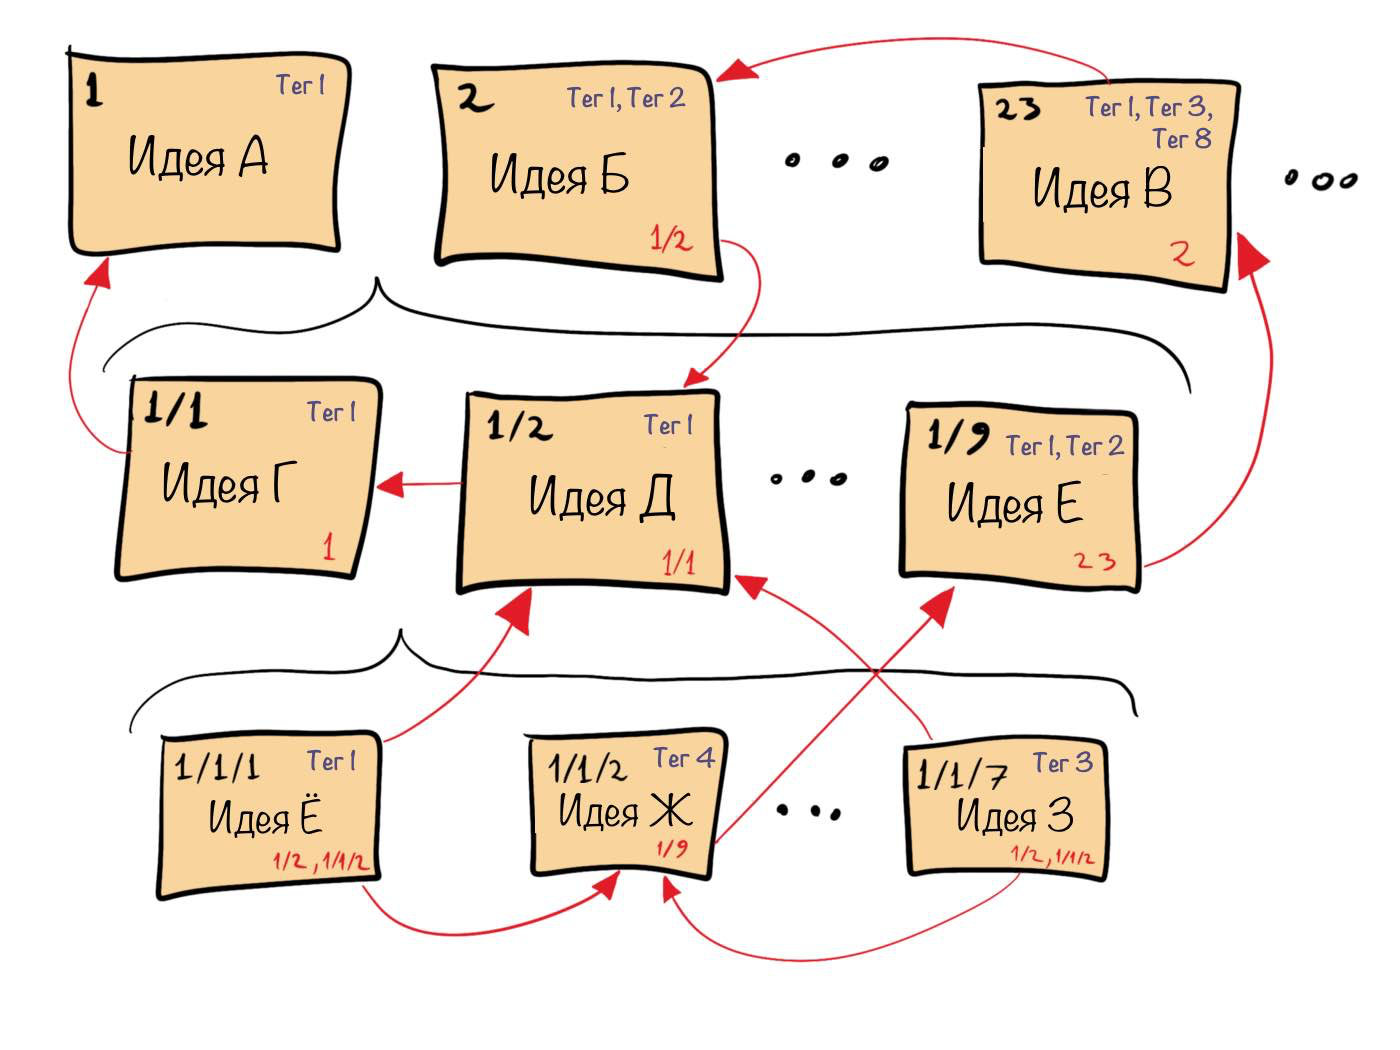 1
Тег 1
Идея А
2
Тег 1, Тег 2
Идея Б
1/2
23
Тег 1, Тег 3,
Тег 8
Идея В
2
1/1
Тег 1
Идея Г
1
1/2
Тег 1
Идея Д
1/1
1/9
Тег 1, Тег 2
Идея Е
23
1/1/1
Тег 1
Идея Ё
1/2, 1/1/2
1/1/2
Тег 4
Идея Ж
1/9
1/1/7
Тег 3
Идея З
1/2, 1/1/2